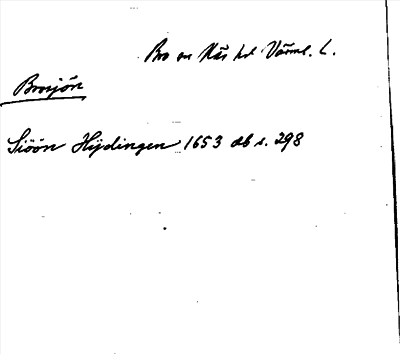 Bro sn Näs hd Värml. L.
Brosjön
Siöön Hijdingen 1653 db s. 298